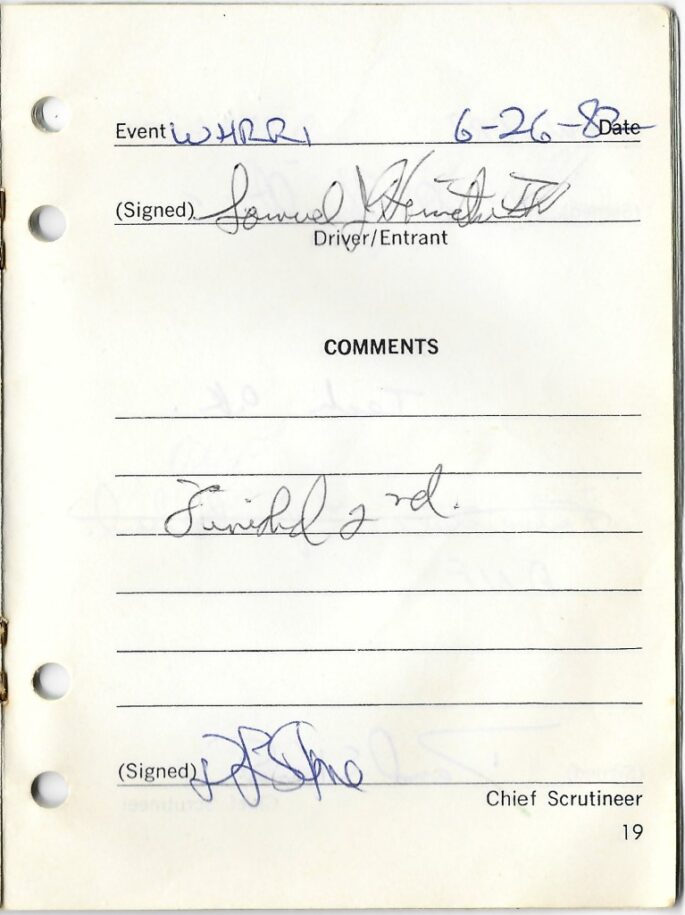 Event WHRRI 6-26-82 Date
(Signed) Samuel
Driver/Entrant
COMMENTS
Finished 2 nd.
(Signed)
Chief Scrutineer
19